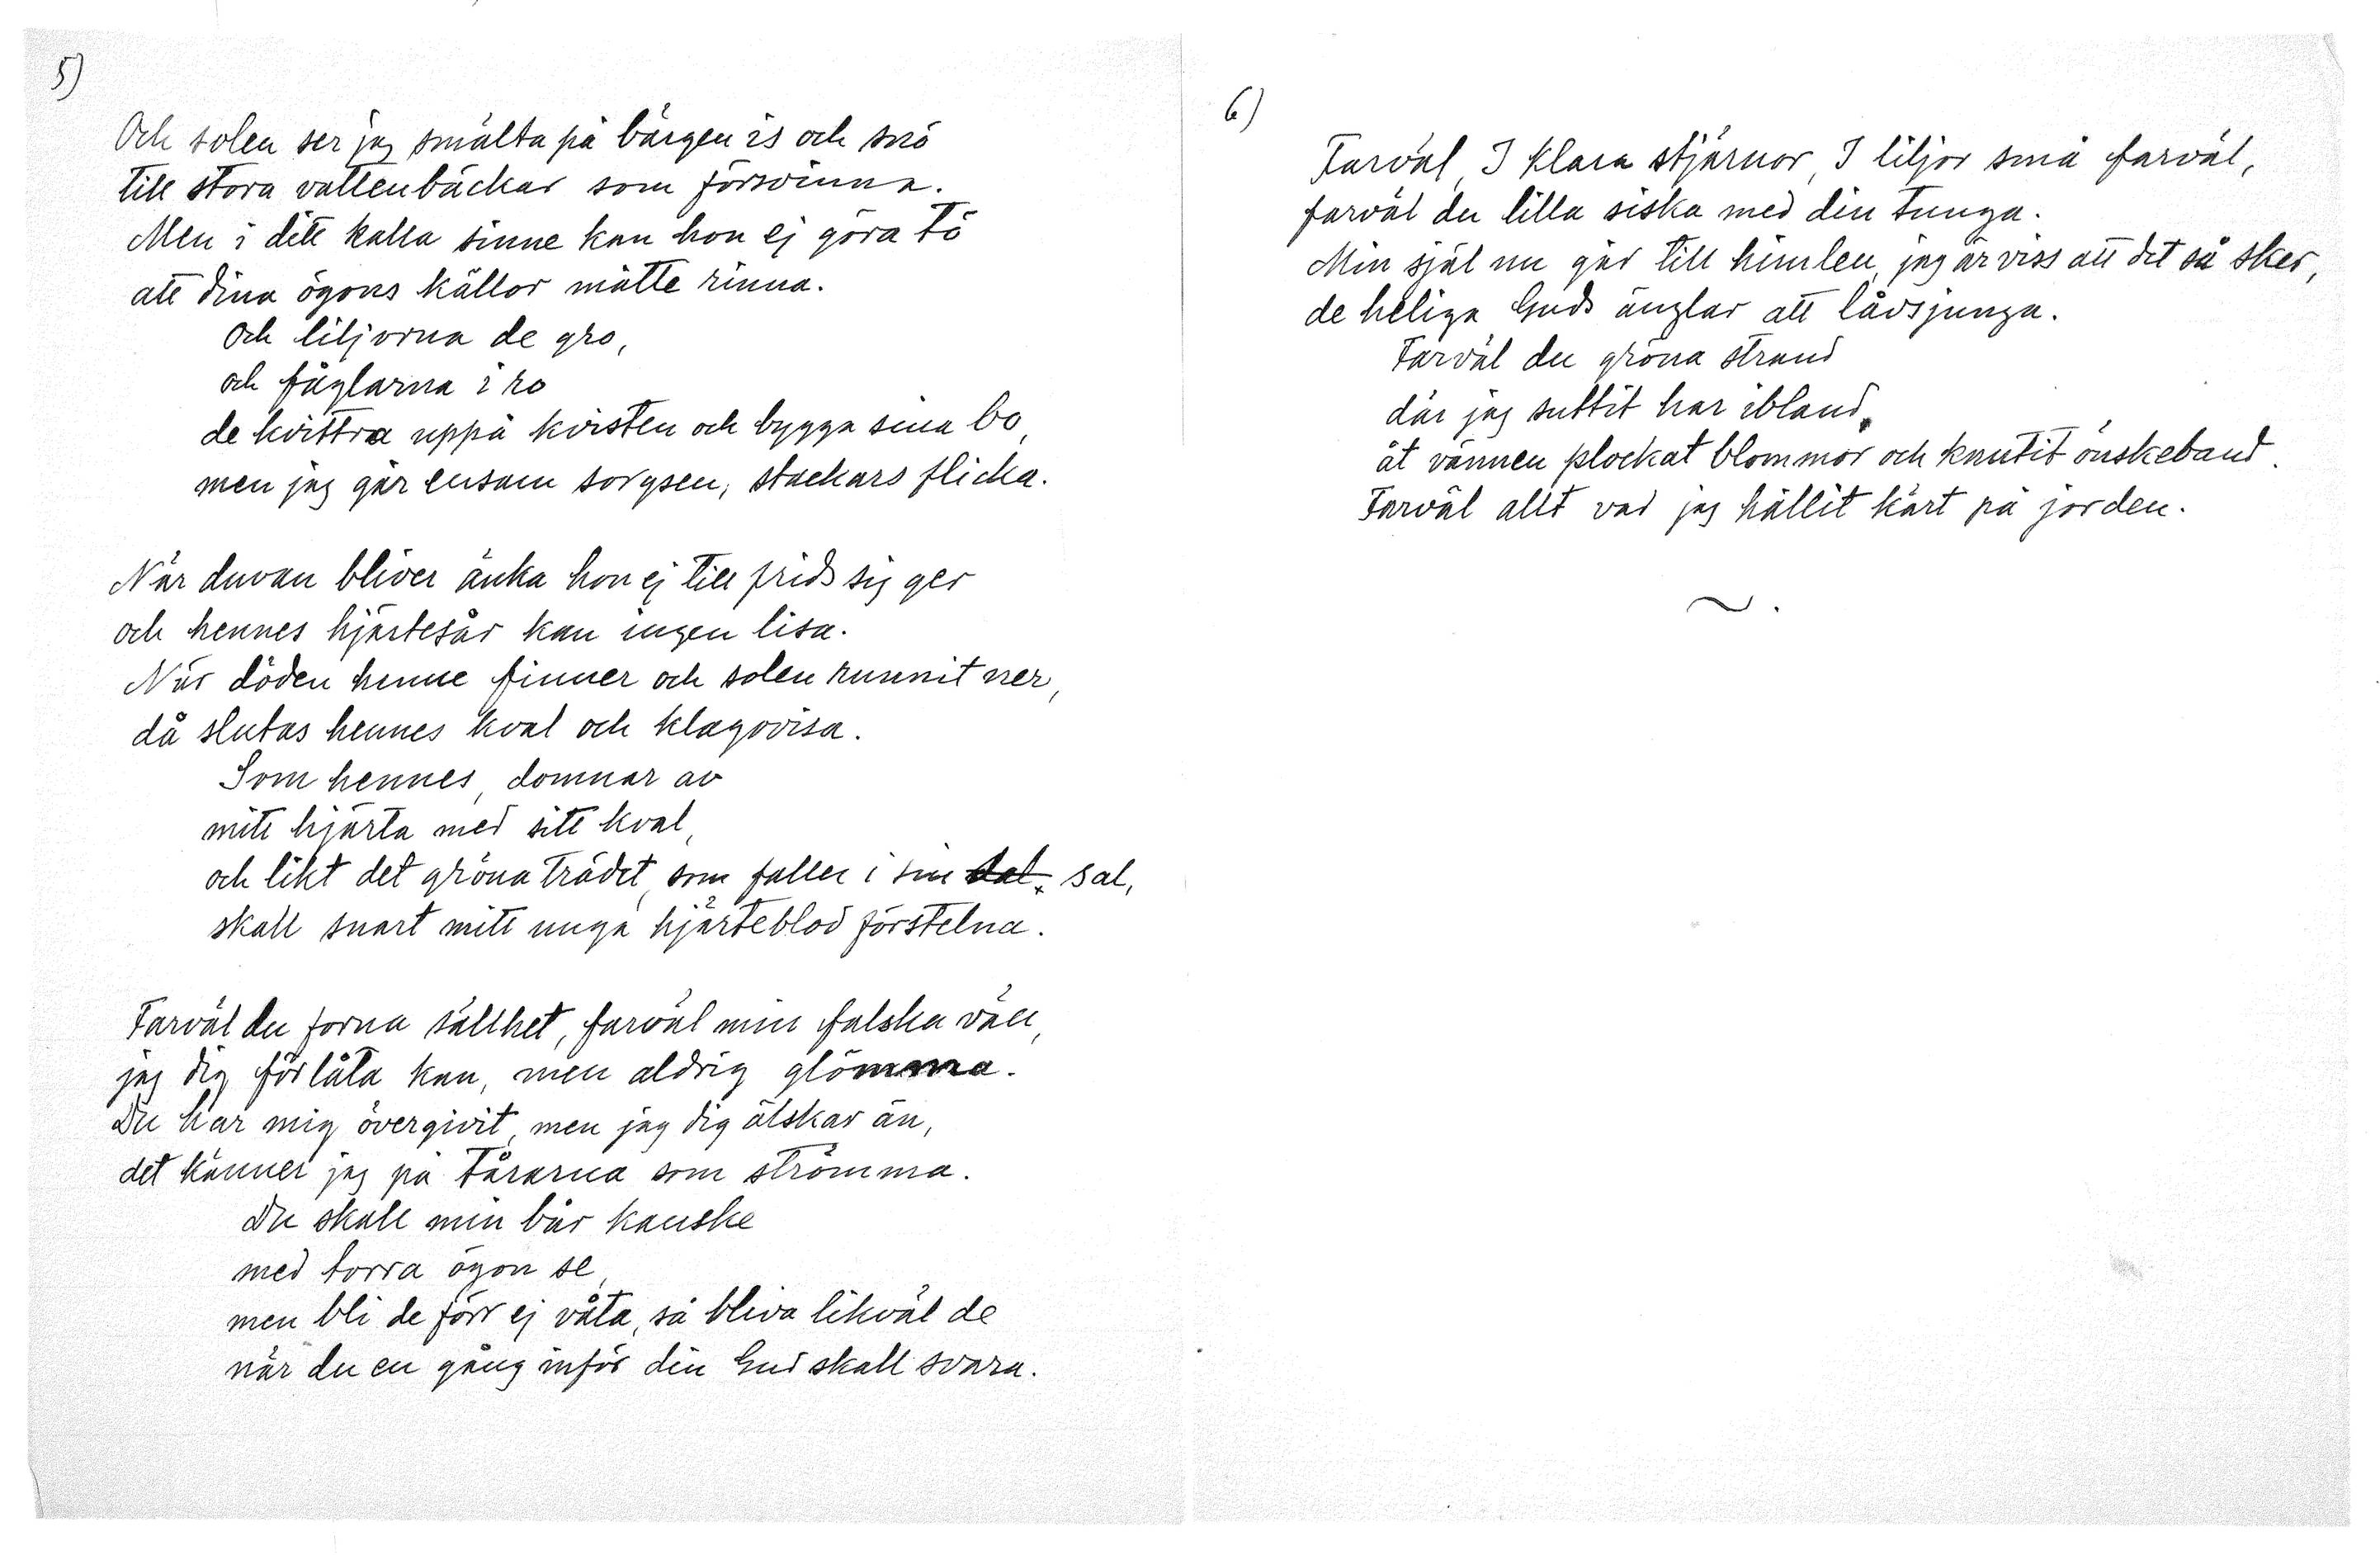 5)
Och solen ser jag smälta på bärgen is och snö
till stora vattenbäckar som försvinna.
Men i ditt kalla sinne kan hon ej göra tö
att dina ögons källor måtte rinna.
Och liljorna de gro,
och fåglarna i ro
de kvittra uppå kvisten och bygga sina bo,
men jag går ensam sorgsen, stackars flicka.
När duvan bliver änka hon ej till frids sig ger
och hennes hjärtesår kan ingen lisa.
När döden henne finner och solen runnit ner,
då slutas hennes kval och klagovisa.
Som hennes, domnar av
mitt hjärta med sitt kval,
och likt det gröna trädet, som faller i sin dal. sal,
skall snart mitt unga hjärteblod förstelna.
Farväl du forna sällhet, farväl min falska vän,
jag dig förlåta kan, men aldrig glömma.
Du har mig övergivit, men jag dig älskar än,
det känner jag på tårarna som strömma.
Du skall min bår kanske
med torra ögon se,
men bli de förr ej våta, så bliva likväl de
när du en gång inför din Gud skall svara.
6)
Farväl, I klara stjärnor, I liljor små farväl,
farväl du lilla siska med din tunga.
Min själ nu går till himlen, jag är viss att det så sker,
de heliga Guds änglar att låvsjunga.
Farväl du gröna strand
där jag suttit har ibland,
åt vännen plockat blommor och knutit önskeband.
Farväl allt vad jag hållit kärt på jorden.
~.